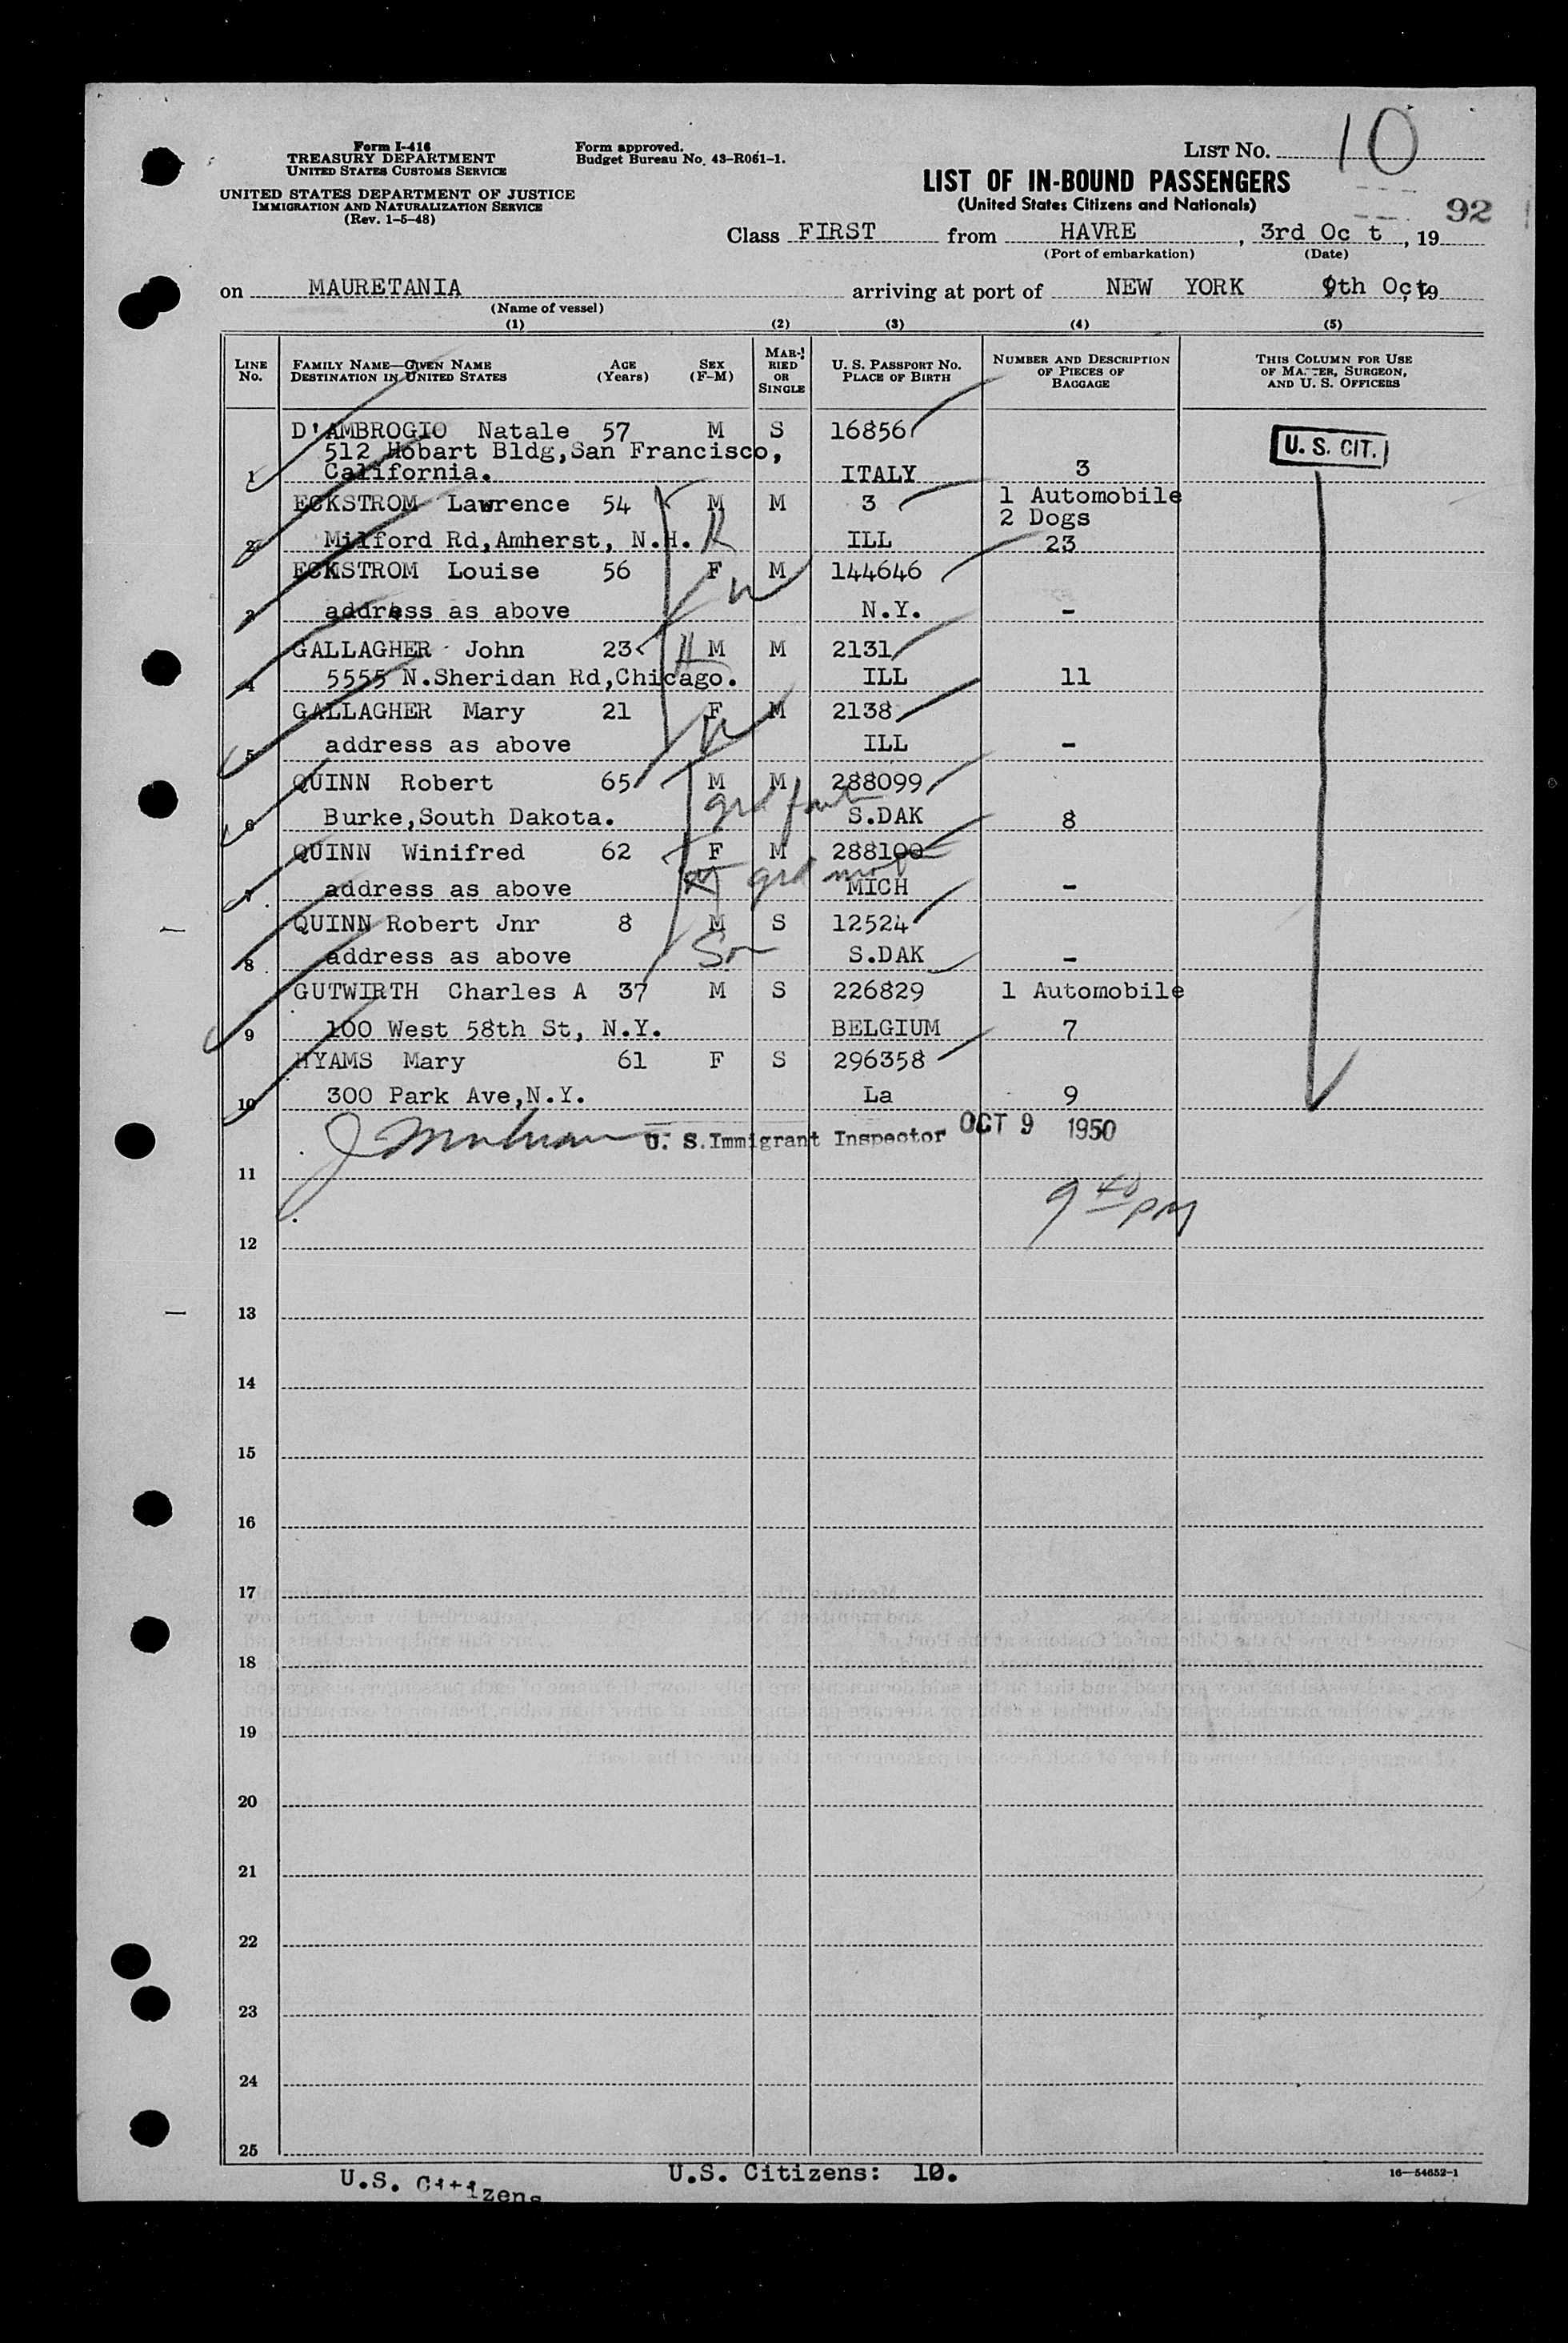 Form I-416
TREASURY DEPARTMENT
UNITED STATES CUSTOMS SERVICE
UNITED STATES DEPARTMENT OF JUSTICE
IMMIGRATION AND NATURALIZATION SERVICE
(Rev. 1-5-48)
Form approved.
Budget Bureau No. 43-R061-1.
LIST No. 10
LIST OF IN-BOUND PASSENGERS
(United States Citizens and Nationals)
92
Class FIRST from HAVRE, 3rd Oc t, 19
(Port of embarkation) (Date)
on MAURETANIA arriving at port of NEW YORK 9th Oct, 19
(Name of vessel)
(1) (2) (3) (4) (5)
LINE No. FAMILY NAME—GIVEN NAME DESTINATION IN UNITED STATES AGE (Years) SEX (F-M) MARRIED OR SINGLE U. S. PASSPORT No. PLACE OF BIRTH NUMBER AND DESCRIPTION OF PIECES OF BAGGAGE THIS COLUMN FOR USE OF MASTER, SURGEON, AND U. S. OFFICERS
D'AMBROGIO Natale 57 M S 16856
U. S. CIT.
512 Hobart Bldg,San Francisco,
1 California. ITALY 3
ECKSTROM Lawrence 54 M M 3 1 Automobile
2 Dogs
2 Milford Rd,Amherst, N.H. H ILL 23
ECKSTROM Louise 56 F M 144646
W
3 address as above N.Y. -
GALLAGHER John 23 M M 2131
H
4 5555 N.Sheridan Rd,Chicago. ILL 11
GALLAGHER Mary 21 F M 2138
W
5 address as above ILL -
QUINN Robert 65 M M 288099
grd fath
6 Burke,South Dakota. S.DAK 8
QUINN Winifred 62 F M 288100
grd mot
7 address as above MICH -
QUINN Robert Jnr 8 M S 12524
Son
8 address as above S.DAK -
GUTWIRTH Charles A 37 M S 226829 1 Automobile
9 100 West 58th St, N.Y. BELGIUM 7
HYAMS Mary 61 F S 296358
10 300 Park Ave,N.Y. La 9
U. S. Immigrant Inspector OCT 9 1950
11
9 40 PM
12
13
14
15
16
17
18
19
20
21
22
23
24
25
U.S. Citizens
U.S. Citizens: 10.
16—54652-1